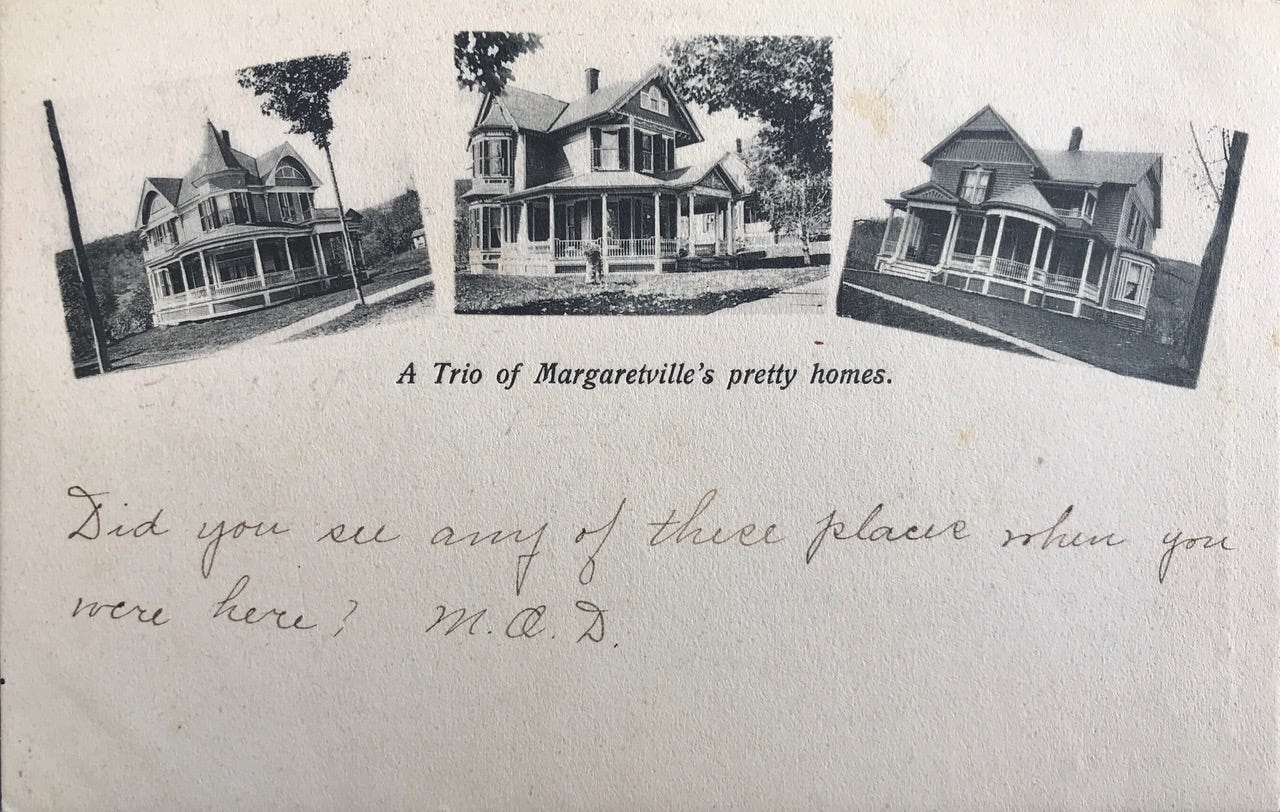 A Trio of Margaretville's pretty homes.
Did you see any of these places when you
were here? M. O. D.